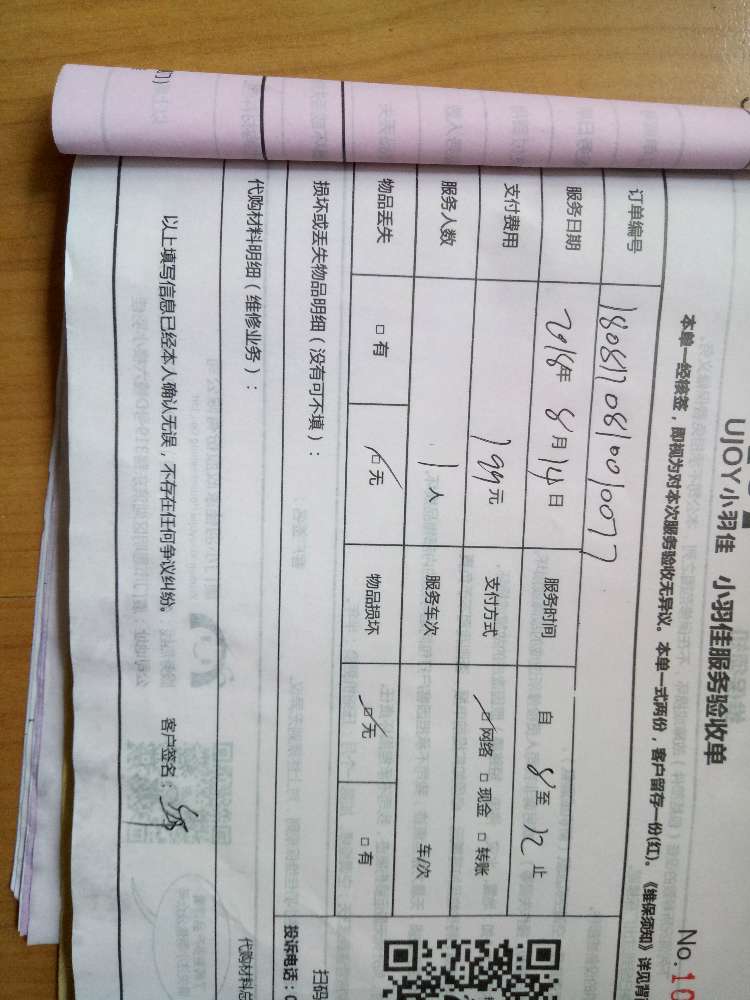 UJOY小羽佳 小羽佳服务验收单
No.10
本单一经核签，即视为对本次服务验收无异议。本单一式两份，客户留存一份(红)。《维保须知》详见背
订单编号 1808170810010077
服务日期 2018年 8月14日 服务时间 自 8 至 12 止
支付费用 199元 支付方式 网络 □现金 □转账
服务人数 1人 服务车次 车/次
物品丢失 □有 □无 物品损坏 □无 □有
损坏或丢失物品明细（没有可不填）：
扫码
投诉电话：0
代购材料明细（维修业务）：
代购材料总
以上填写信息已经本人确认无误，不存在任何争议纠纷。 客户签名：